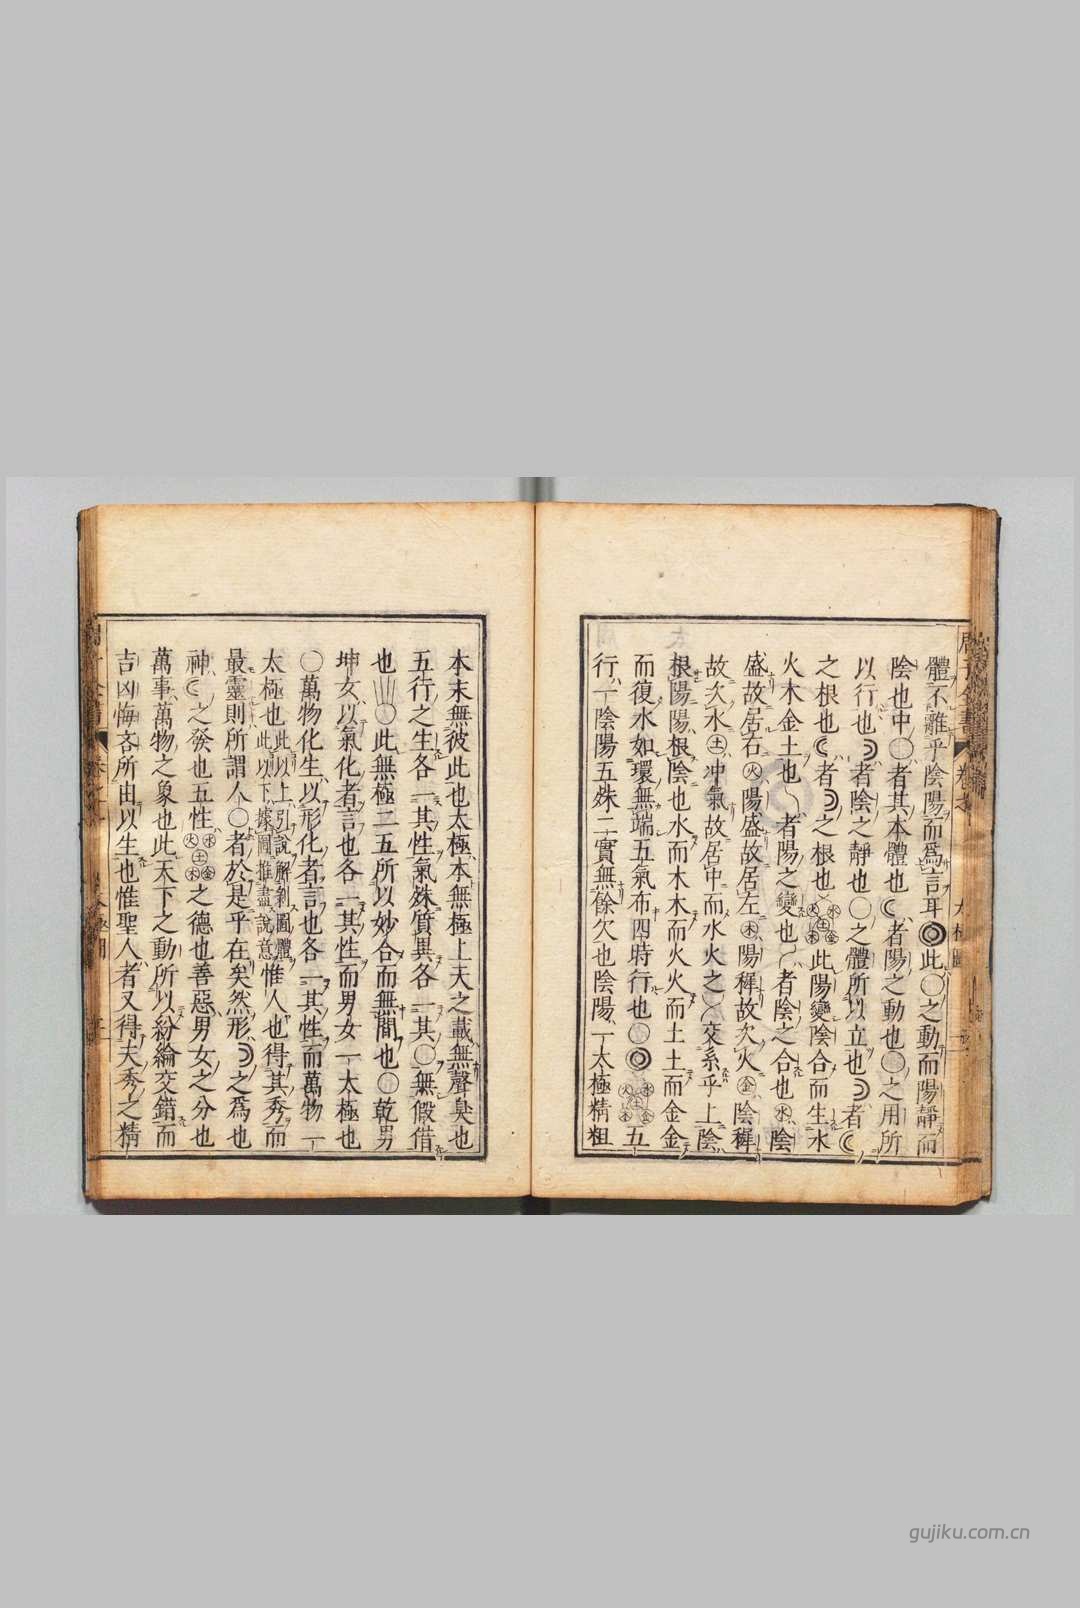 體不離乎陰陽而爲言耳◎此○之動而陽靜而
陰也中○者其本體也☾者陽之動也○之用所
以行也☽者陰之靜也○之體所以立也☽者☾
之根也☾者☽之根也水火土木金此陽變陰合而生水
火木金土也﹏者陽之變也﹏者陰之合也水陰
盛故居右火陽盛故居左木陽穉故次火金陰穉
故次水土冲氣故居中而水火之㐅交系乎上陰
根陽陽根陰也水而木木而火火而土土而金金
而復水如環無端五氣布四時行也○◎水火土木金五
行一陰陽五殊二實無餘欠也陰陽一太極精粗
本末無彼此也太極本無極上天之載無聲臭也
五行之生各一其性氣殊質異各一其○無假借
也○此無極二五所以妙合而無間也○乾男
坤女以氣化者言也各一其性而男女一太極也
○萬物化生以形化者言也各一其性而萬物一
太極也此以上引說解剝圖體此以下據圖推盡說意惟人也得其秀而
最靈則所謂人○者於是乎在矣然形☽之爲也
神☾之發也五性水火土木金之德也善惡男女之分也
萬事萬物之象也此天下之動所以紛綸交錯而
吉凶悔吝所由以生也惟聖人者又得夫秀之精
gujiku.com.cn